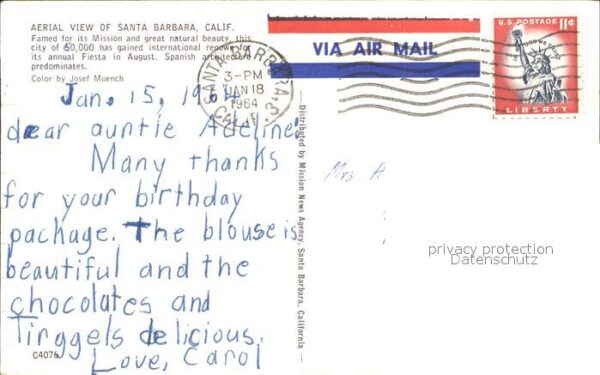 AERIAL VIEW OF SANTA BARBARA, CALIF.
Famed for its Mission and great natural beauty, this
city of 60,000 has gained international renown for
its annual Fiesta in August. Spanish architecture
predominates.
Color by Josef Muench
Jan. 15, 1964
dear auntie Adeline,
Many thanks
for your birthday
package. The blouse is
beautiful and the
chocolates and
Tirggels delicious.
Love, Carol
C4076
Distributed by Mission News Agency, Santa Barbara, California
SANTA BARBARA, CALIF.
3-PM
JAN 18
1964
VIA AIR MAIL
U.S. POSTAGE 11¢
IN GOD WE TRUST
LIBERTY
Mrs A
privacy protection
Datenschutz